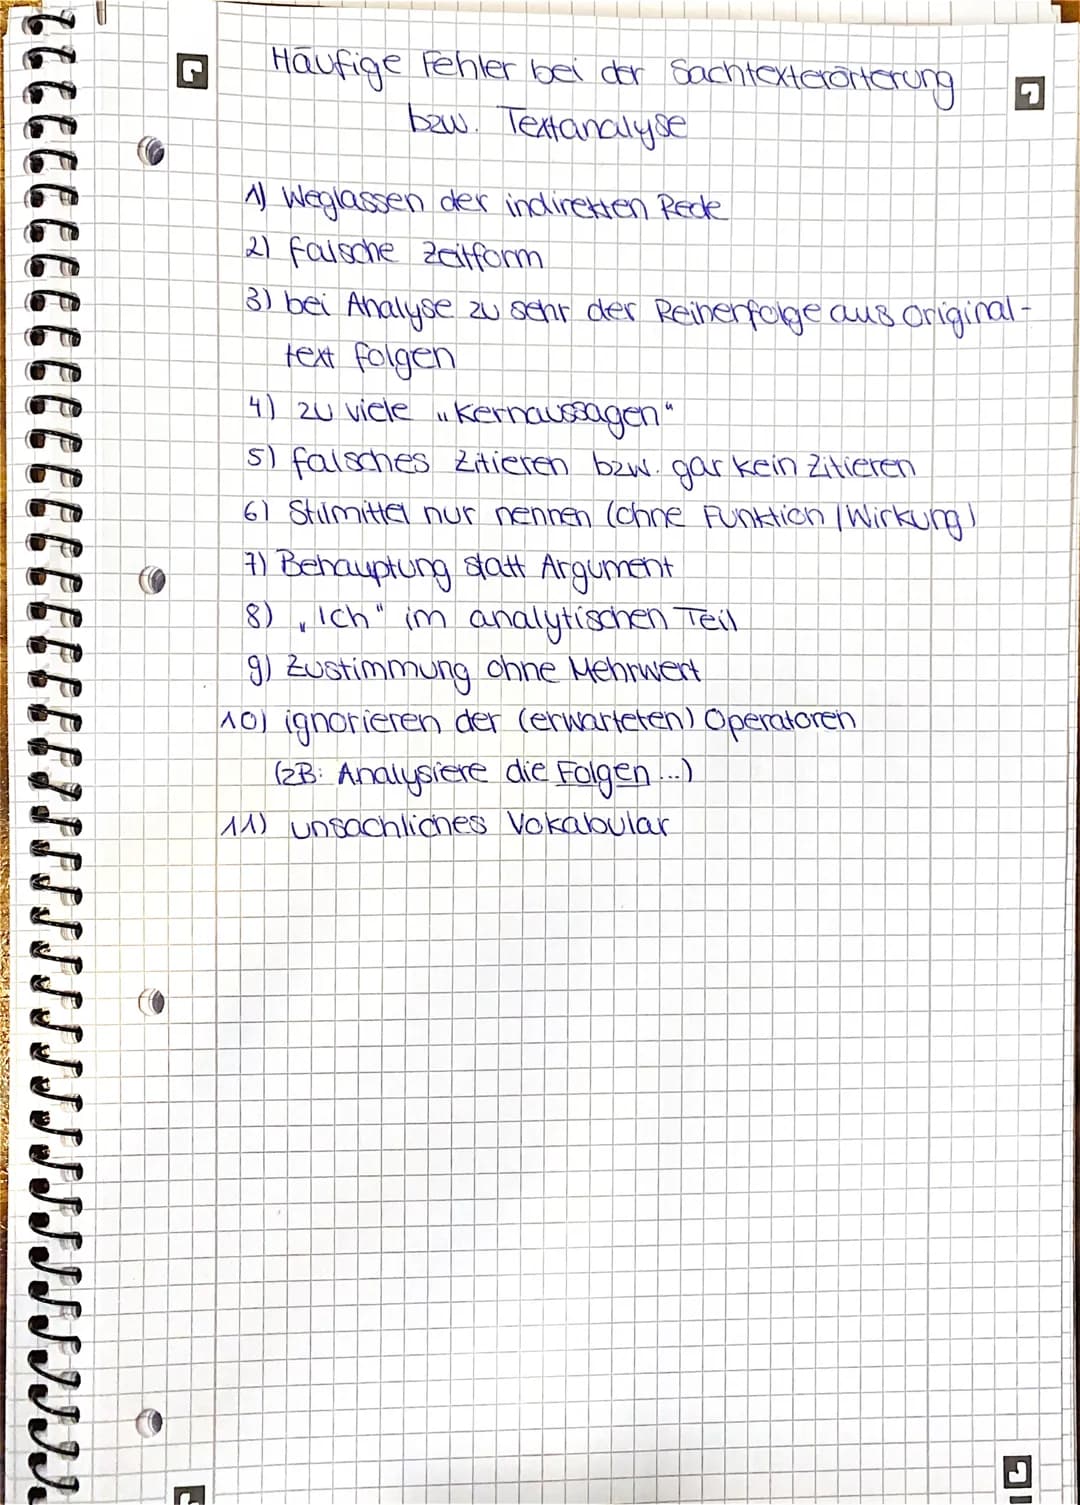 Häufige Fehler bei der Sachtexterörterung
bzw. Textanalyse
1) Weglassen der indirekten Rede
2) falsche Zeitform
3) bei Analyse zu sehr der Reihenfolge aus Original-
text folgen
4) zu viele „Kernaussagen"
5) falsches Zitieren bzw. gar kein Zitieren
6) Stilmittel nur nennen (ohne Funktion / Wirkung)
7) Behauptung statt Argument
8) „Ich" im analytischen Teil
9) Zustimmung ohne Mehrwert
10) ignorieren der (erwarteten) Operatoren
(zB: Analysiere die Folgen...)
11) unsachliches Vokabular